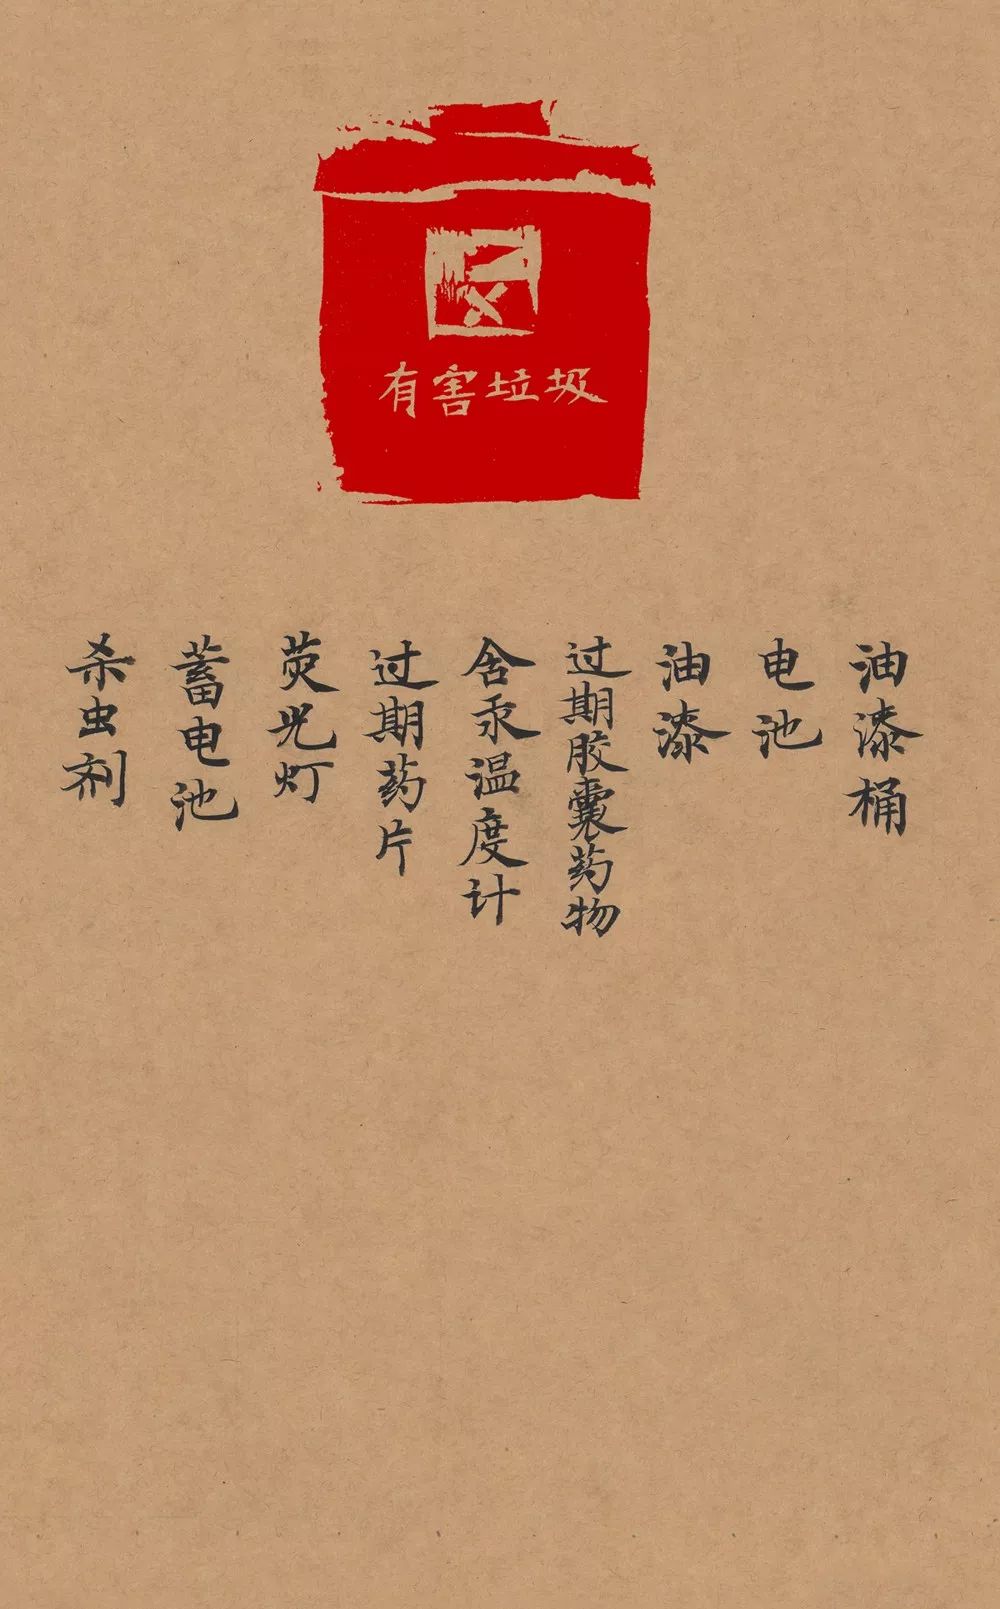 有害垃圾
油漆桶
电池
油漆
过期胶囊药物
含汞温度计
过期药片
荧光灯
蓄电池
杀虫剂